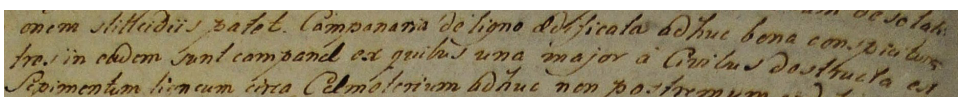 onem stillicidiis patet. Campanaria de ligno ædificata adhuc bona conspicitur
tres in eadem sunt campanæ ex quibus una major à Civibus destructa est
Sepimentum ligneum circa Cœmeterium adhuc non postremum